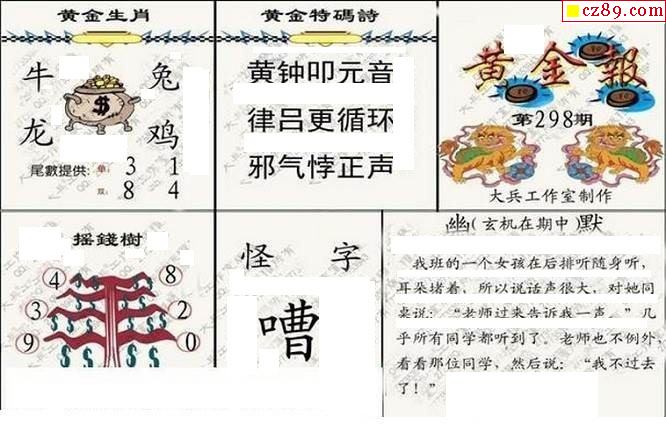 cz89.com
黄金生肖
牛 兔
龙 鸡
尾數提供: 单: 3 1
双: 8 4
黄金特碼詩
黄钟叩元音
律吕更循环
邪气悖正声
黄金報
第298期
大兵工作室制作
摇錢樹
4 8
3 2
9 0
怪字
嘈
幽(玄机在期中)默
我班的一个女孩在后排听随身听,
耳朵堵着,所以说话声很大,对她同
桌说:“老师过来告诉我一声。”几
乎所有同学都听到了,老师也不例外,
看看那位同学,然后说:“我不过去
了!”